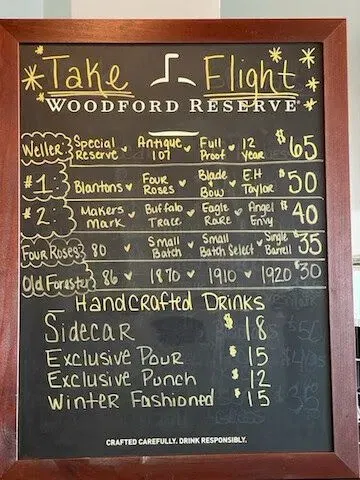 Take Flight
WOODFORD RESERVE
Weller: Special Reserve Antique 107 Full Proof 12 Year $65
#1: Blantons Four Roses Blade & Bow E.H Taylor $50
#2: Makers Mark Buffalo Trace Eagle Rare Angel Envy $40
Four Roses: 80 Small Batch Small Batch Select Single Barrel $35
Old Forester 86 1870 1910 1920 $30
Handcrafted Drinks
Sidecar $18
Exclusive Pour $15
Exclusive Punch $12
Winter Fashioned $15
CRAFTED CAREFULLY. DRINK RESPONSIBLY.